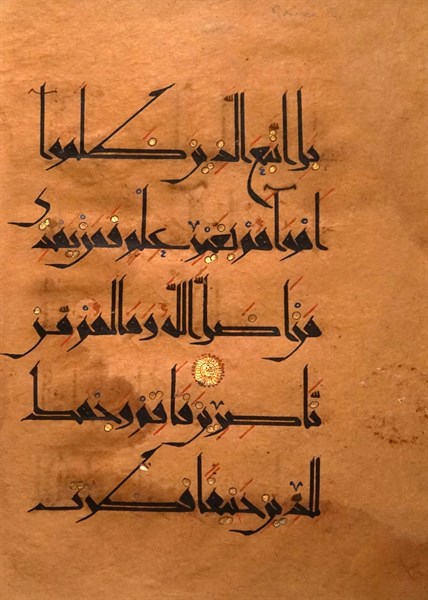 بل اتبع الذين ظلموا
اهواهم بغير علم فمن يهدي
من اضل الله وما لهم من
ناصرين فاقم وجهك
للدين حنيفا فطرت